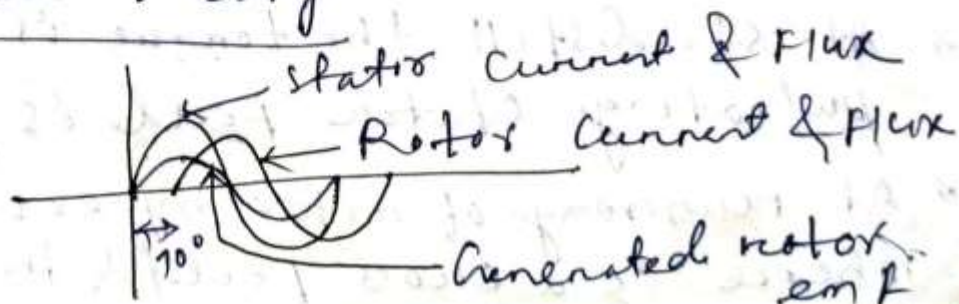 Stator Current & Flux
Rotor Current & Flux
90°
Generated rotor
emf